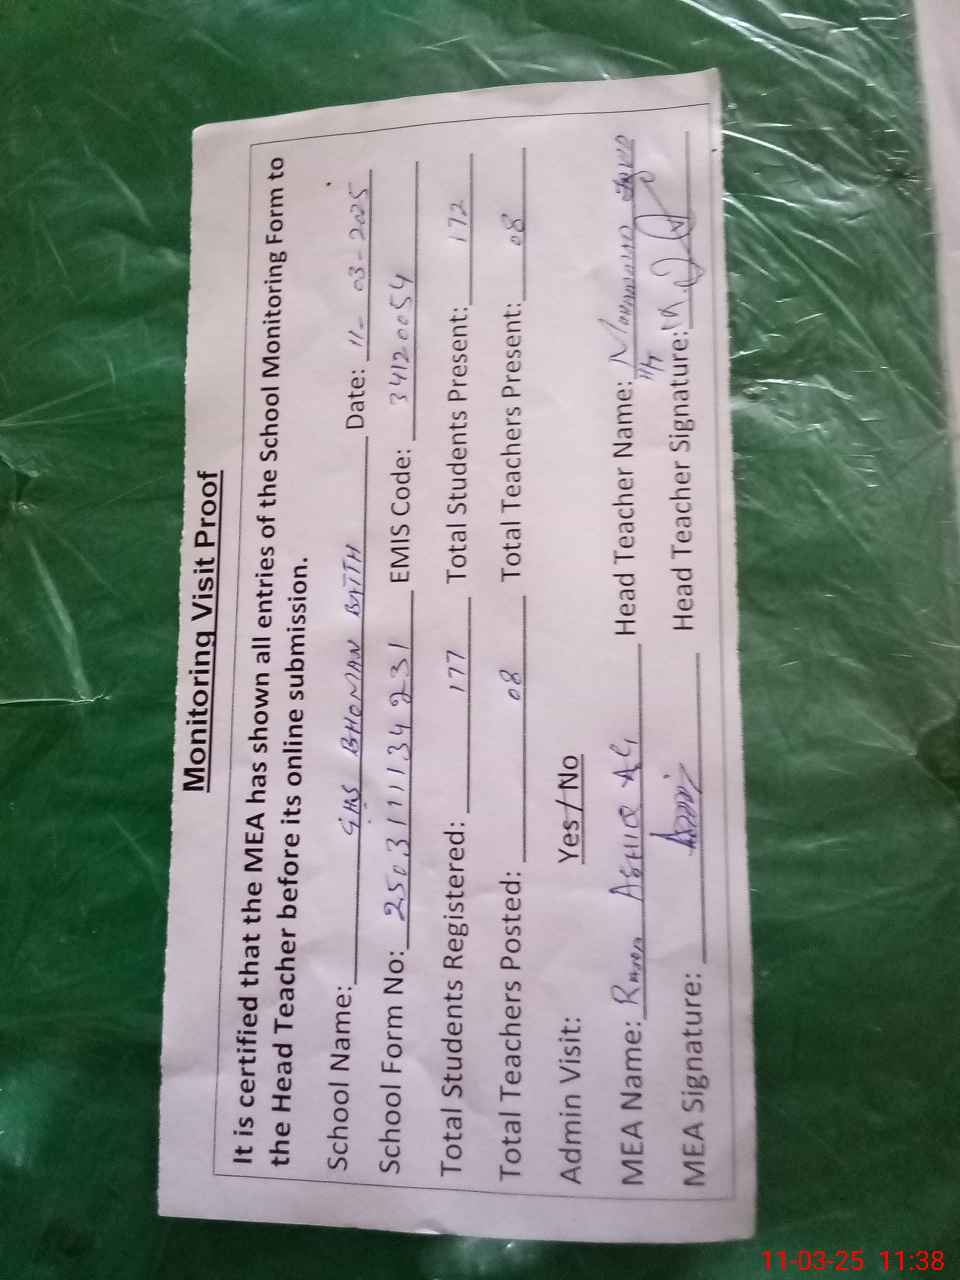 Monitoring Visit Proof
It is certified that the MEA has shown all entries of the School Monitoring Form to
the Head Teacher before its online submission.
School Name: GHS BHOMAN BATTH Date: 11-03-2025
School Form No: 2503111134231 EMIS Code: 34120054
Total Students Registered: 177 Total Students Present: 172
Total Teachers Posted: 08 Total Teachers Present: 08
Admin Visit: Yes / No
MEA Name: ASHIQ ALI Head Teacher Name:
MEA Signature: Head Teacher Signature:
11-03-25 11:38